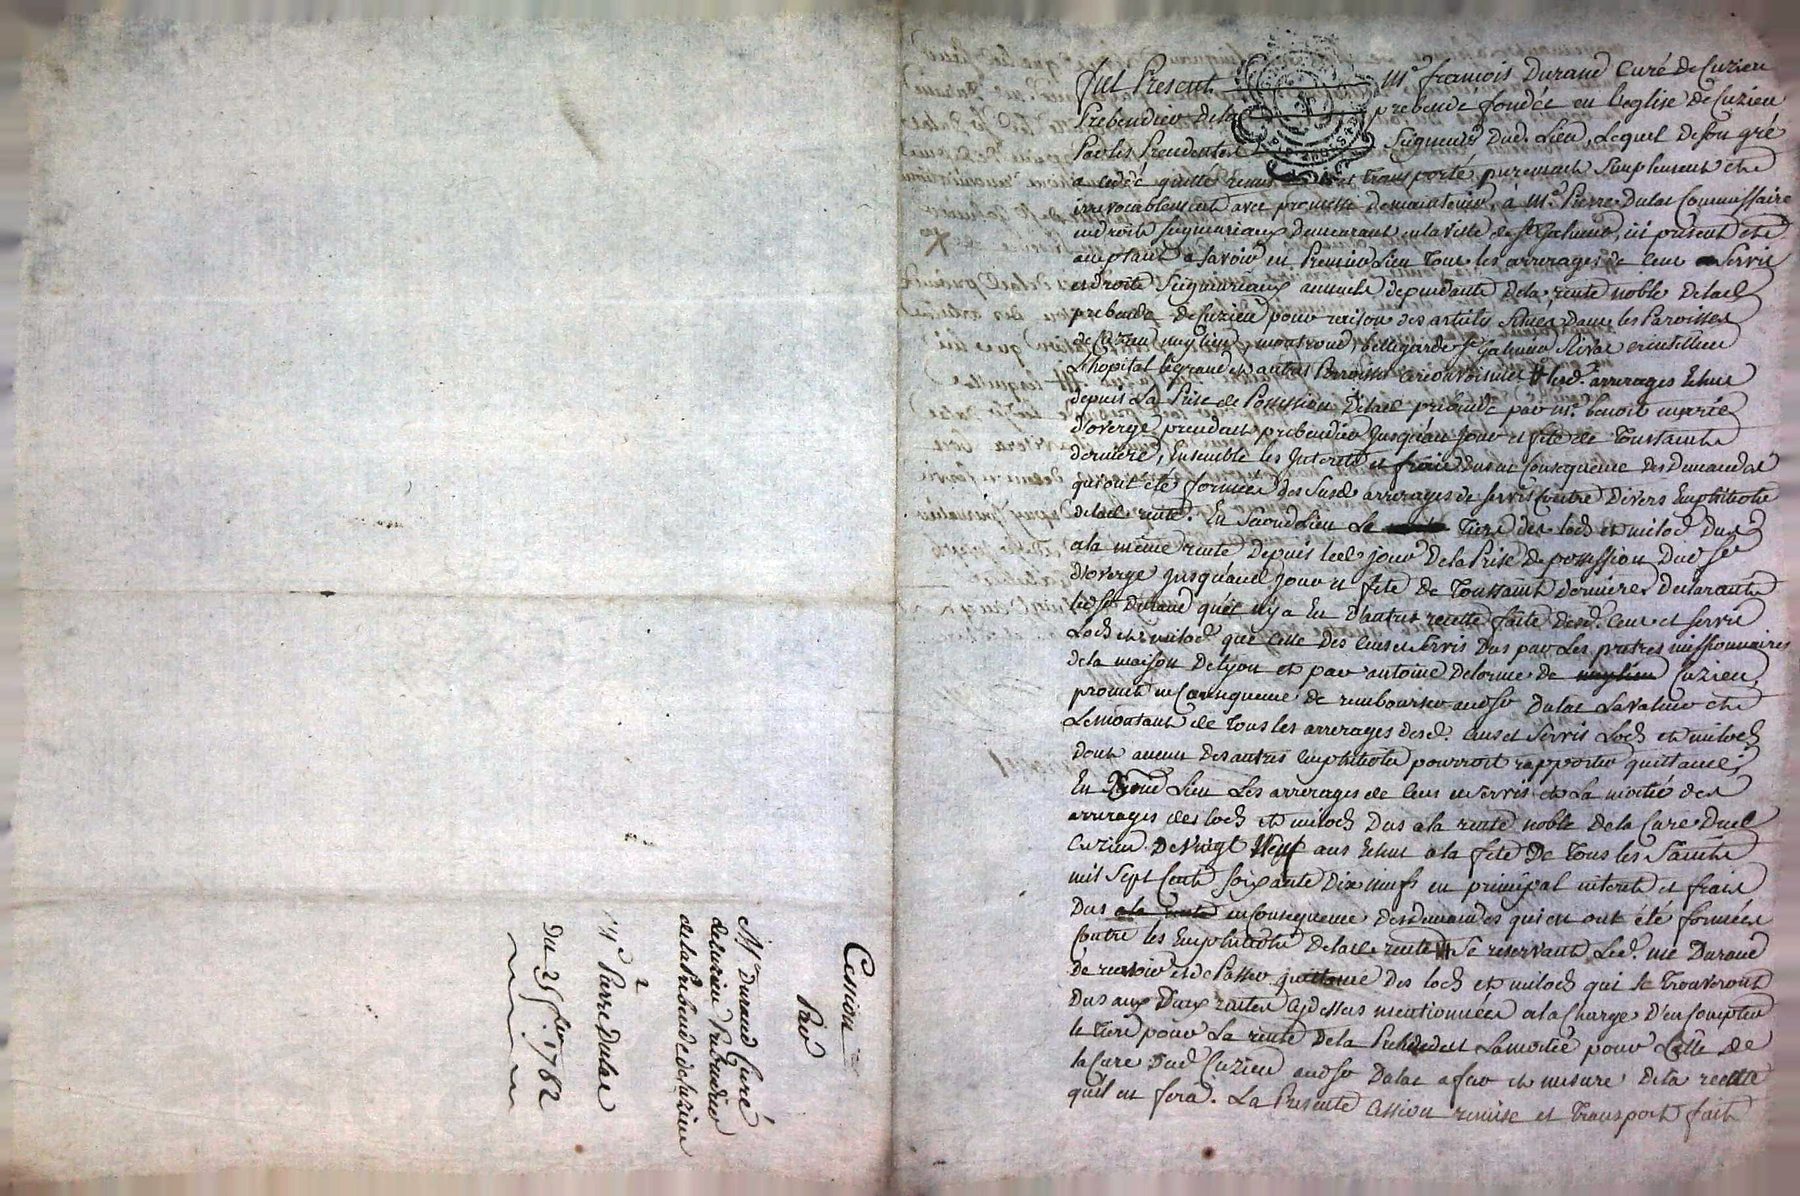 Cession
Par
Mr Durand Curé
de Cuzieu Prebendier
de la Prebende de Cuzieu
a
Mr Pierre Dulac
Du 25 1782
fut Present Me francois Durand Curé De Cuzieu
Prebendier dela prebende fondée en l'eglise de Cuzieu
Par les Seigneurs Dud. Lieu, Lequel de son gré
a cedé quitté remis et transporté purement simplement et
irrevocablement avec promesse de maintenir, à Me Pierre Dulac Commissaire
en droits seigneuriaux Demeurant en la ville de St Galmier, ici present et
acceptant a Savoir en Premier Lieu Tous les arrerages de Cens et Servis
et droits Seigneuriaux annuels dependants Dela rente noble Delad.
prebende De Cuzieu pour raison des articles situés Dans les Paroisses
de Cuzieu meylieu montrond, bellegarde St Galmier Rivas
L'hopital le grand et autres Parroisses circonvoisines lesd. arrerages Echus
depuis La Prise de Possession Delad. prebende par mr. benoit
d'overge precedent prebendier Jusqu'au Jour et fete de Toussaints
derniere, Ensemble les Interets et frais Dus en Consequence Des Demandes
qui ont été formées des Susd. arrerages de servis contre Divers Emphiteotes
delad. rente. En Second Lieu Le Tiers des lods et milods Dus
a la même rente Depuis led. jour De la Prise de possession Dud. Sr
D'overge Jusqu'aud. Jour et fete de Toussaint derniere, Declarant
led. Sr Durand qu'il n'y a Eu D'autres recette faite Desd. Cens et servis
Lods et milods que Celle Des Cens et Servis Dus par Les pretres missionnaires
de la maison De Lyon et par antoine Delorme de Cuzieu,
promet en Consequence de rembourser aud. Sr Dulac La valeur et
Le montant de Tous les arrerages desd. Cens et Servis Lods et milods
dont aucun Des autres Emphiteotes pourroit rapporter quittance,
En 3eme Lieu Les arrerages de Cens et Servis et La moitié des
arrerages des lods et milods Dus a la rente noble De la Cure Dud.
Cuzieu De Vingt Neuf ans Echus a la fete De Tous les Saints
mil Sept Cents soixante Dix neufs en principal interets et frais
Dus en Consequence Des demandes qui en ont été formées
Contre les Emphiteotes Delad. rente Se reservant Led. me Durand
de recevoir et de Passer quittance Des lods et milods qui se Trouveront
Dus aux Deux rentes cydessus mentionnées a la Charge D'en Compter
le Tiers pour La rente De la Prebende et La moitié pour Celle de
la Cure Dud. Cuzieu aud. Sr Dulac a fur et mesure De la recette
qu'il en fera. La Presente Cession remise et Transport faits